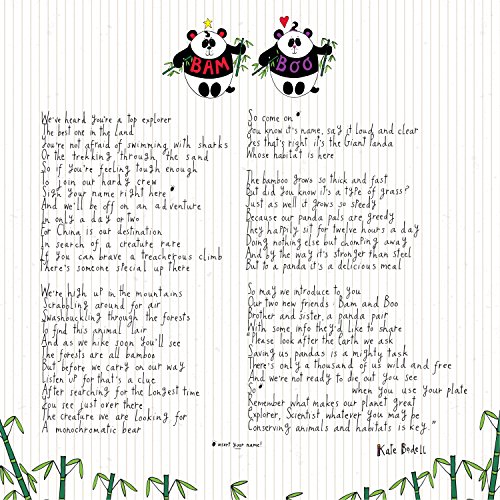 BAM
BOO
We've heard you're a top explorer
The best one in the land
You're not afraid of swimming with sharks
Or the trekking through the sand
So if you're feeling tough enough
To join our hardy crew
Sign your name right here *
And we'll be off on an adventure
In only a day or two
For China is our destination
In search of a creature rare
If you can brave a treacherous climb
There's someone special up there
We're high up in the mountains
Scrabbling around for air
Swashbuckling through the forests
To find this animal lair
And as we hike soon you'll see
The forests are all bamboo
But before we carry on our way
Listen up for that's a clue
After searching for the longest time
You see just over there
The creature we are looking for
A monochromatic bear
So come on *
You know it's name, say it loud and clear
Yes that's right it's the Giant Panda
Whose habitat is here
The bamboo grows so thick and fast
But did you know it's a type of grass?
Just as well it grows so speedy
Because our panda pals are greedy
They happily sit for twelve hours a day
Doing nothing else but chomping away
And by the way it's stronger than steel
But to a panda it's a delicious meal
So may we introduce to you
Our two new friends: Bam and Boo
Brother and sister, a panda pair
With some info they'd like to share
"Please look after the Earth we ask
Saving us pandas is a mighty task
There's only a thousand of us wild and free
And we're not ready to die out you see
So * when you use your plate
Remember what makes our planet great
Explorer, Scientist whatever you may be
Conserving animals and habitats is key."
* insert your name!
Kate Bodell